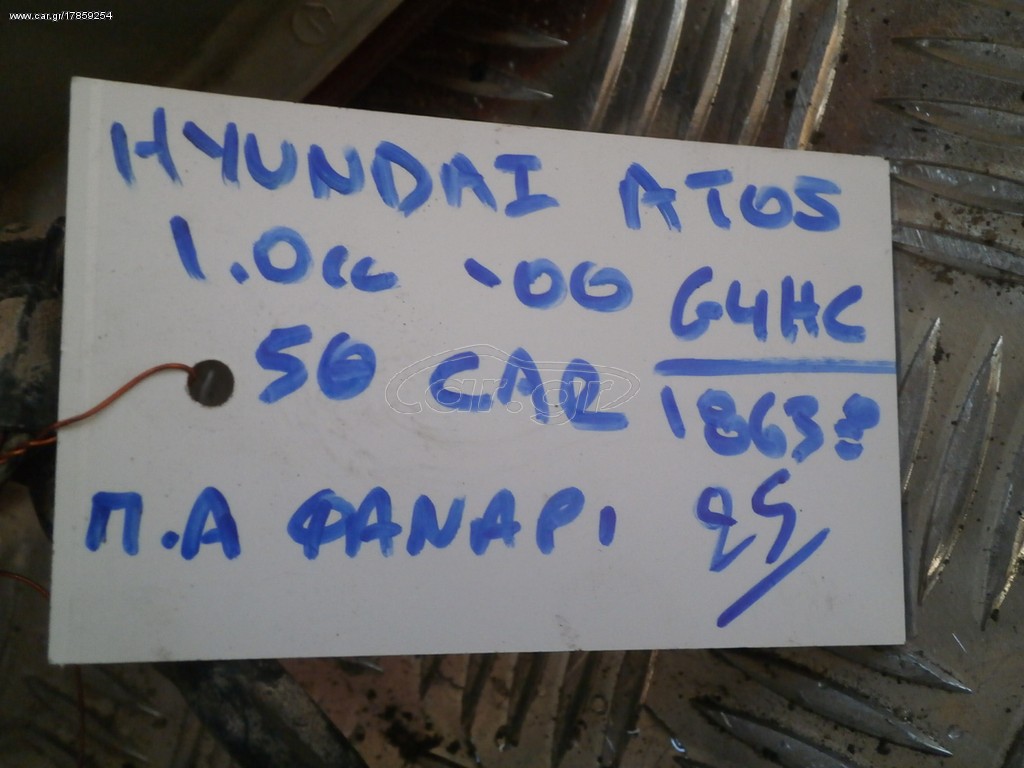 www.car.gr/17859254
HYUNDAI ATOS
1.0cc -00
G4HC
50 CAR
18638
Π.Α ΦΑΝΑΡΙ
25